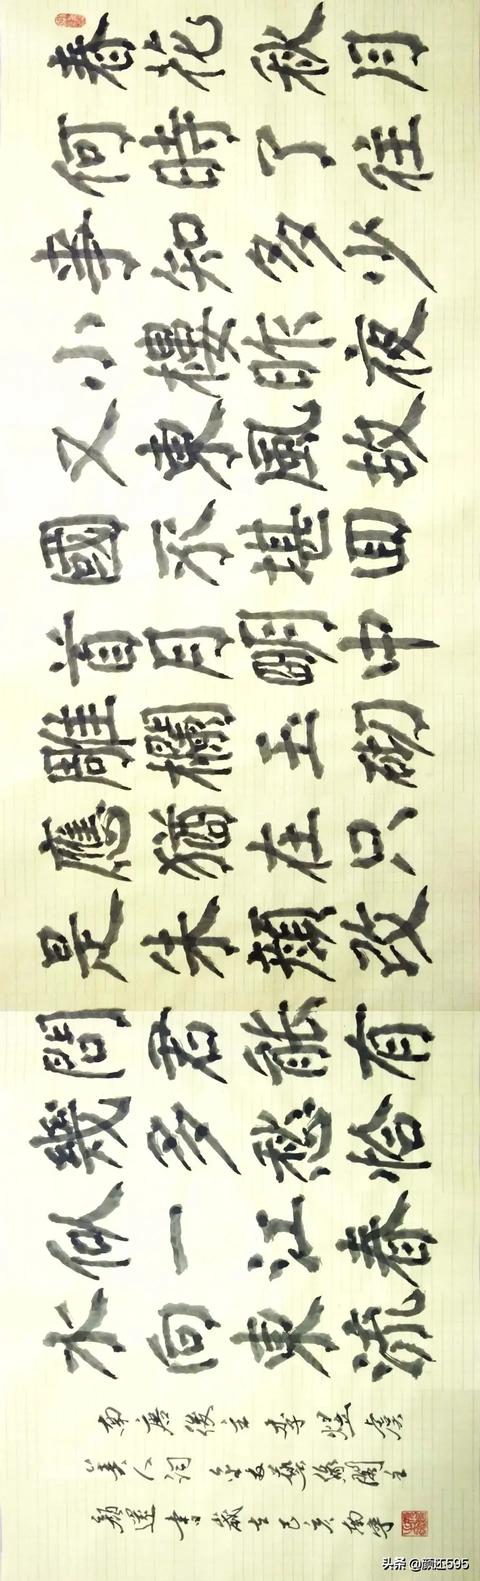 春花秋月
何時了往
事知多少
小樓昨夜
又東風故
國不堪回
首月明中
雕欄玉砌
應猶在只
是朱顏改
問君能有
幾多愁恰
似一江春
水向東流
南唐後主李煜虞
美人詞 藝緣閣主
顏還書歲在己亥
头条 @颜还595